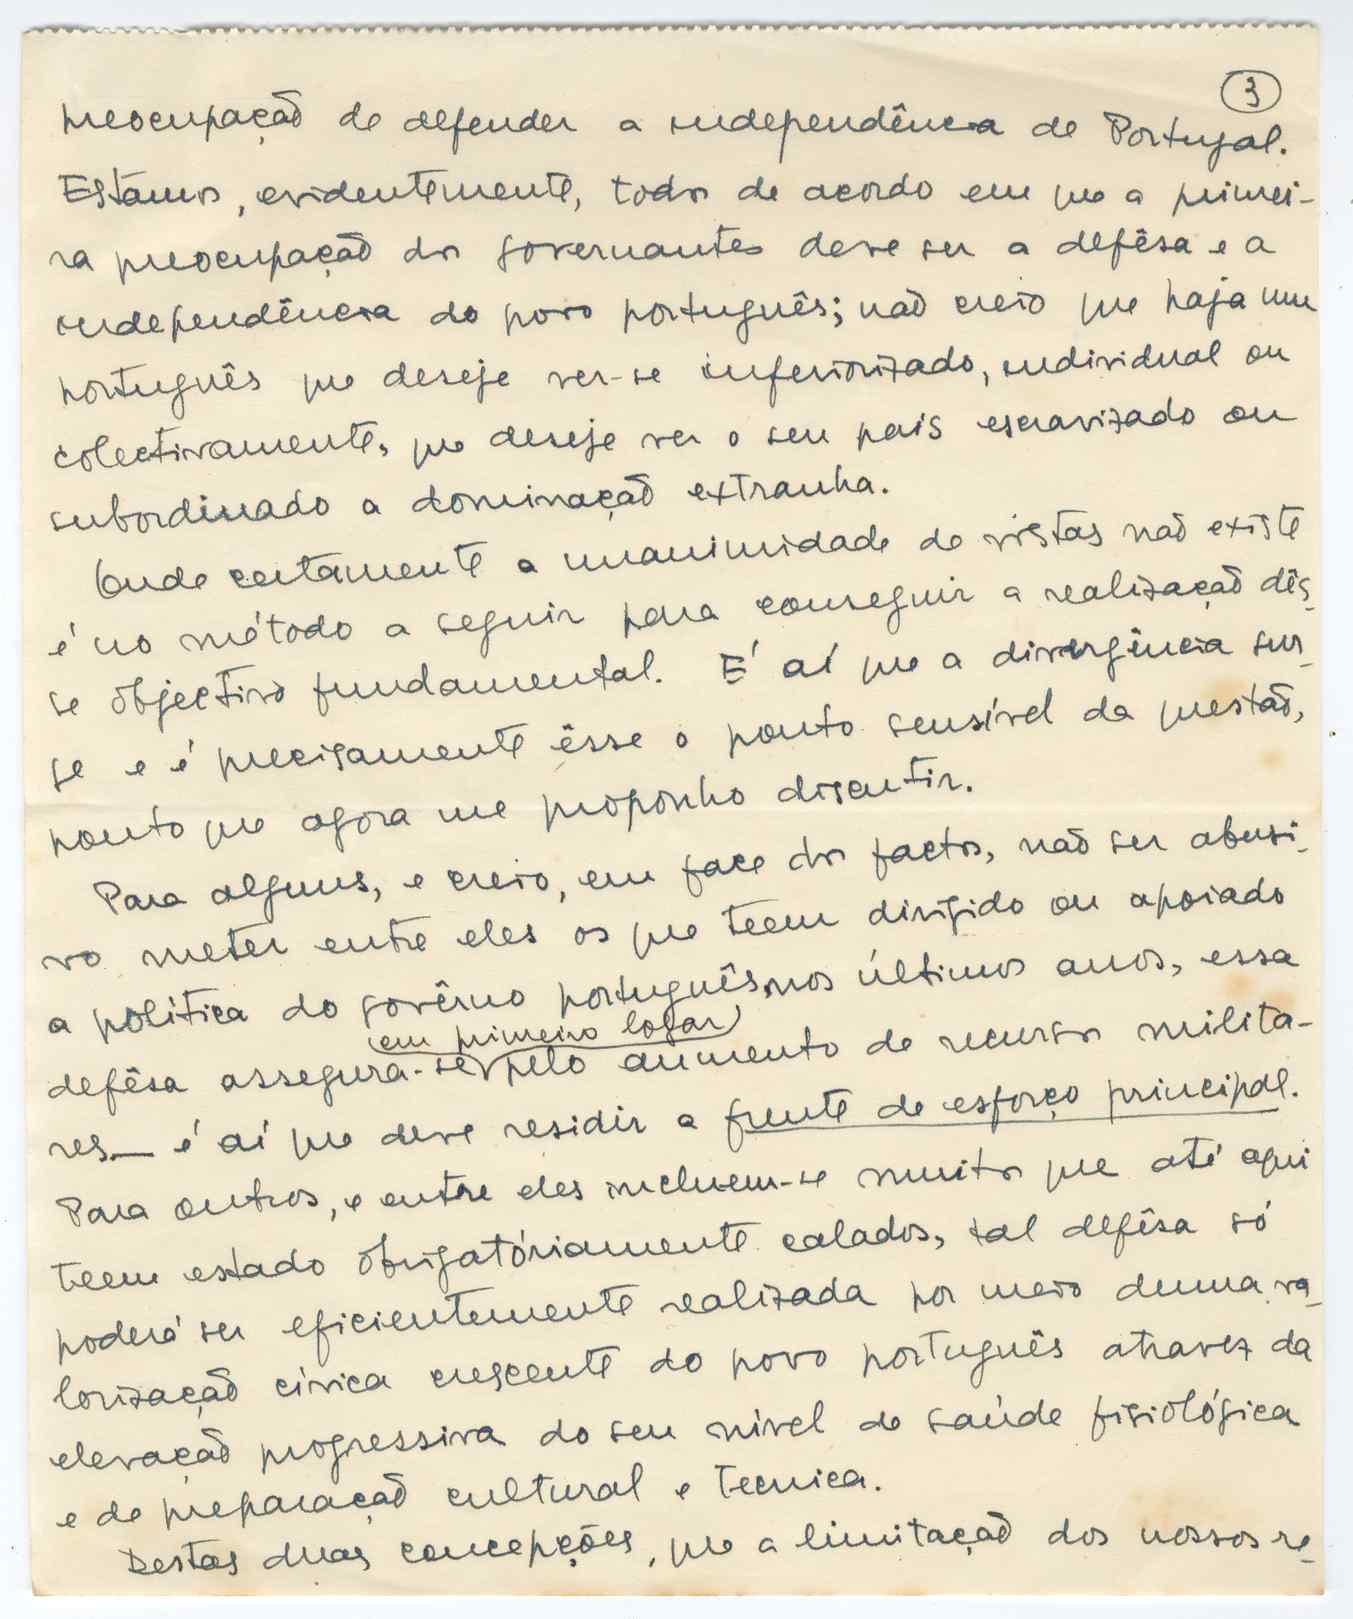 3
preocupação de defender a independência de Portugal.
Estâmos, evidentemente, todos de acordo em que a primei-
ra preocupação dos governantes deve ser a defêsa e a
independência do povo português; não creio que haja um
português que deseje ver-se inferiorizado, individual ou
colectivamente, que deseje ver o seu país escravizado ou
subordinado a dominação extranha.
Onde certamente a unanimidade de vistas não existe
é no método a seguir para conseguir a realização dês-
se objectivo fundamental. É aí que a divergência sur-
ge e é precisamente êsse o ponto sensível da questão,
ponto que agora me proponho discutir.
Para alguns, e creio, em face dos factos, não ser abusi-
vo meter entre eles os que teem dirigido ou apoiado
a política do govêrno português, nos últimos anos, essa
em primeiro logar
defêsa assegura-se pelo aumento de recursos milita-
res — é aí que deve residir a frente de esforço principal.
Para outros, e entre eles incluem-se muitos que até aqui
teem estado obrigatóriamente calados, tal defêsa só
poderá ser eficientemente realizada por meio duma va-
lorização cívica crescente do povo português atravez da
elevação progressiva do seu nível de saúde fisiológica
e de preparação cultural e tecnica.
Destas duas concepções, que a limitação dos nossos re-